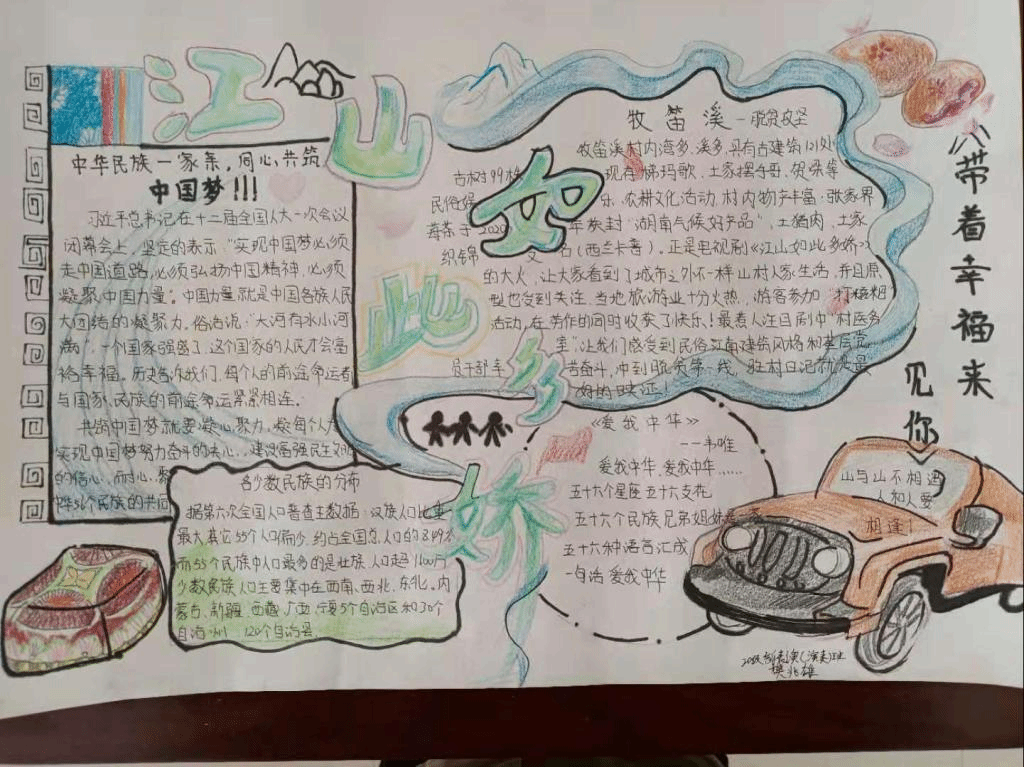 江山如此多娇
中华民族一家亲,同心共筑
中国梦!!!
习近平总书记在十二届全国人大一次会议
闭幕会上,坚定的表示,“实现中国梦必须
走中国道路,必须弘扬中国精神,必须
凝聚中国力量”。中国力量就是中国各族人民
大团结的凝聚力。俗话说:“大河有水小河
满”,一个国家强盛了,这个国家的人民才会富
裕幸福。历史告诉我们,每个人的前途命运都
与国家、民族的前途命运紧紧相连。
共筑中国梦就要凝心聚力,凝每个人为
实现中国梦努力奋斗的决心,建设富强民主
的信心,
56个民族的共同
各少数民族的分布
据第六次全国人口普查主数据,汉族人口比重
最大其它55个人口偏少,约占全国总人口的8.49%
而55个民族中人口最多的是壮族,人口超1700万
少数民族人口主要集中在西南、西北、东北、内
蒙古、新疆、西藏、广西、宁夏5个自治区和30个
自治州、120个自治县
牧笛溪—脱贫攻坚
牧笛溪村内湾多、溪多,具有古建筑121处
古树99株 现有梯玛歌、土家摆手歌、贺梁等
民俗娱 乐、农耕文化活动,村内物产丰富,张家界
莓茶于2020 年获封“湖南气候好产品”,土猪肉、土家
织锦 又 名(西兰卡普)。正是电视剧《江山如此多娇》
的大火,让大家看到了城市之外不一样山村人家生活,并且原
型也受到关注,当地旅游业十分火热,游客参加“打糍粑”
活动,在劳作的同时收获了快乐!最惹人注目剧中“村医务
室”,让我们感受到民俗江南建筑风格和基层党
员干部辛 苦奋斗,冲到脱贫第一线,驻村日记就是最
好的见证!
《爱我中华》
——韦唯
爱我中华,爱我中华……
五十六个星座五十六支花
五十六个民族兄弟姐妹是一家
五十六种语言汇成
一句话爱我中华
八带着幸福来
见你
山与山不相遇
人和人要
相逢!